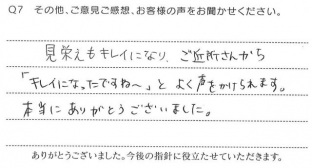 Q7 その他、ご意見ご感想、お客様の声をお聞かせください。
見栄えもキレイになり、ご近所さんから
「キレイになったですね〜」と よく声をかけられます。
本当に ありがとうございました。
ありがとうございました。今後の指針に役立たせていただきます。